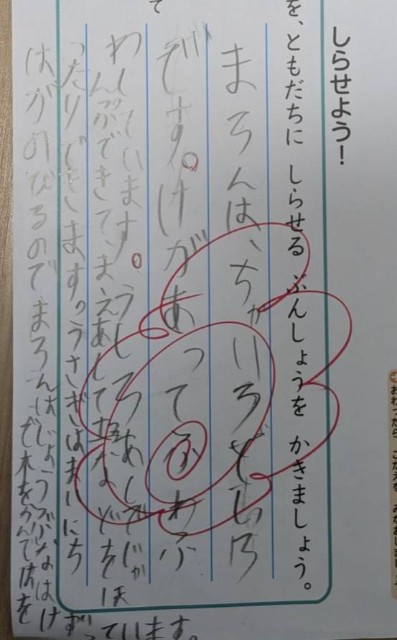 しらせよう！
を、ともだちに しらせる ぶんしょうを かきましょう。
て
まろんは、ちゃいろでしろ
です。けがあってふわふ
わしています。うしろあしでじゃ
んぷできて、まえあしで
ったりできます。うさぎはまいにち
はがのびるのでまろんはじょうぶなは
で木をかんではを
ています。